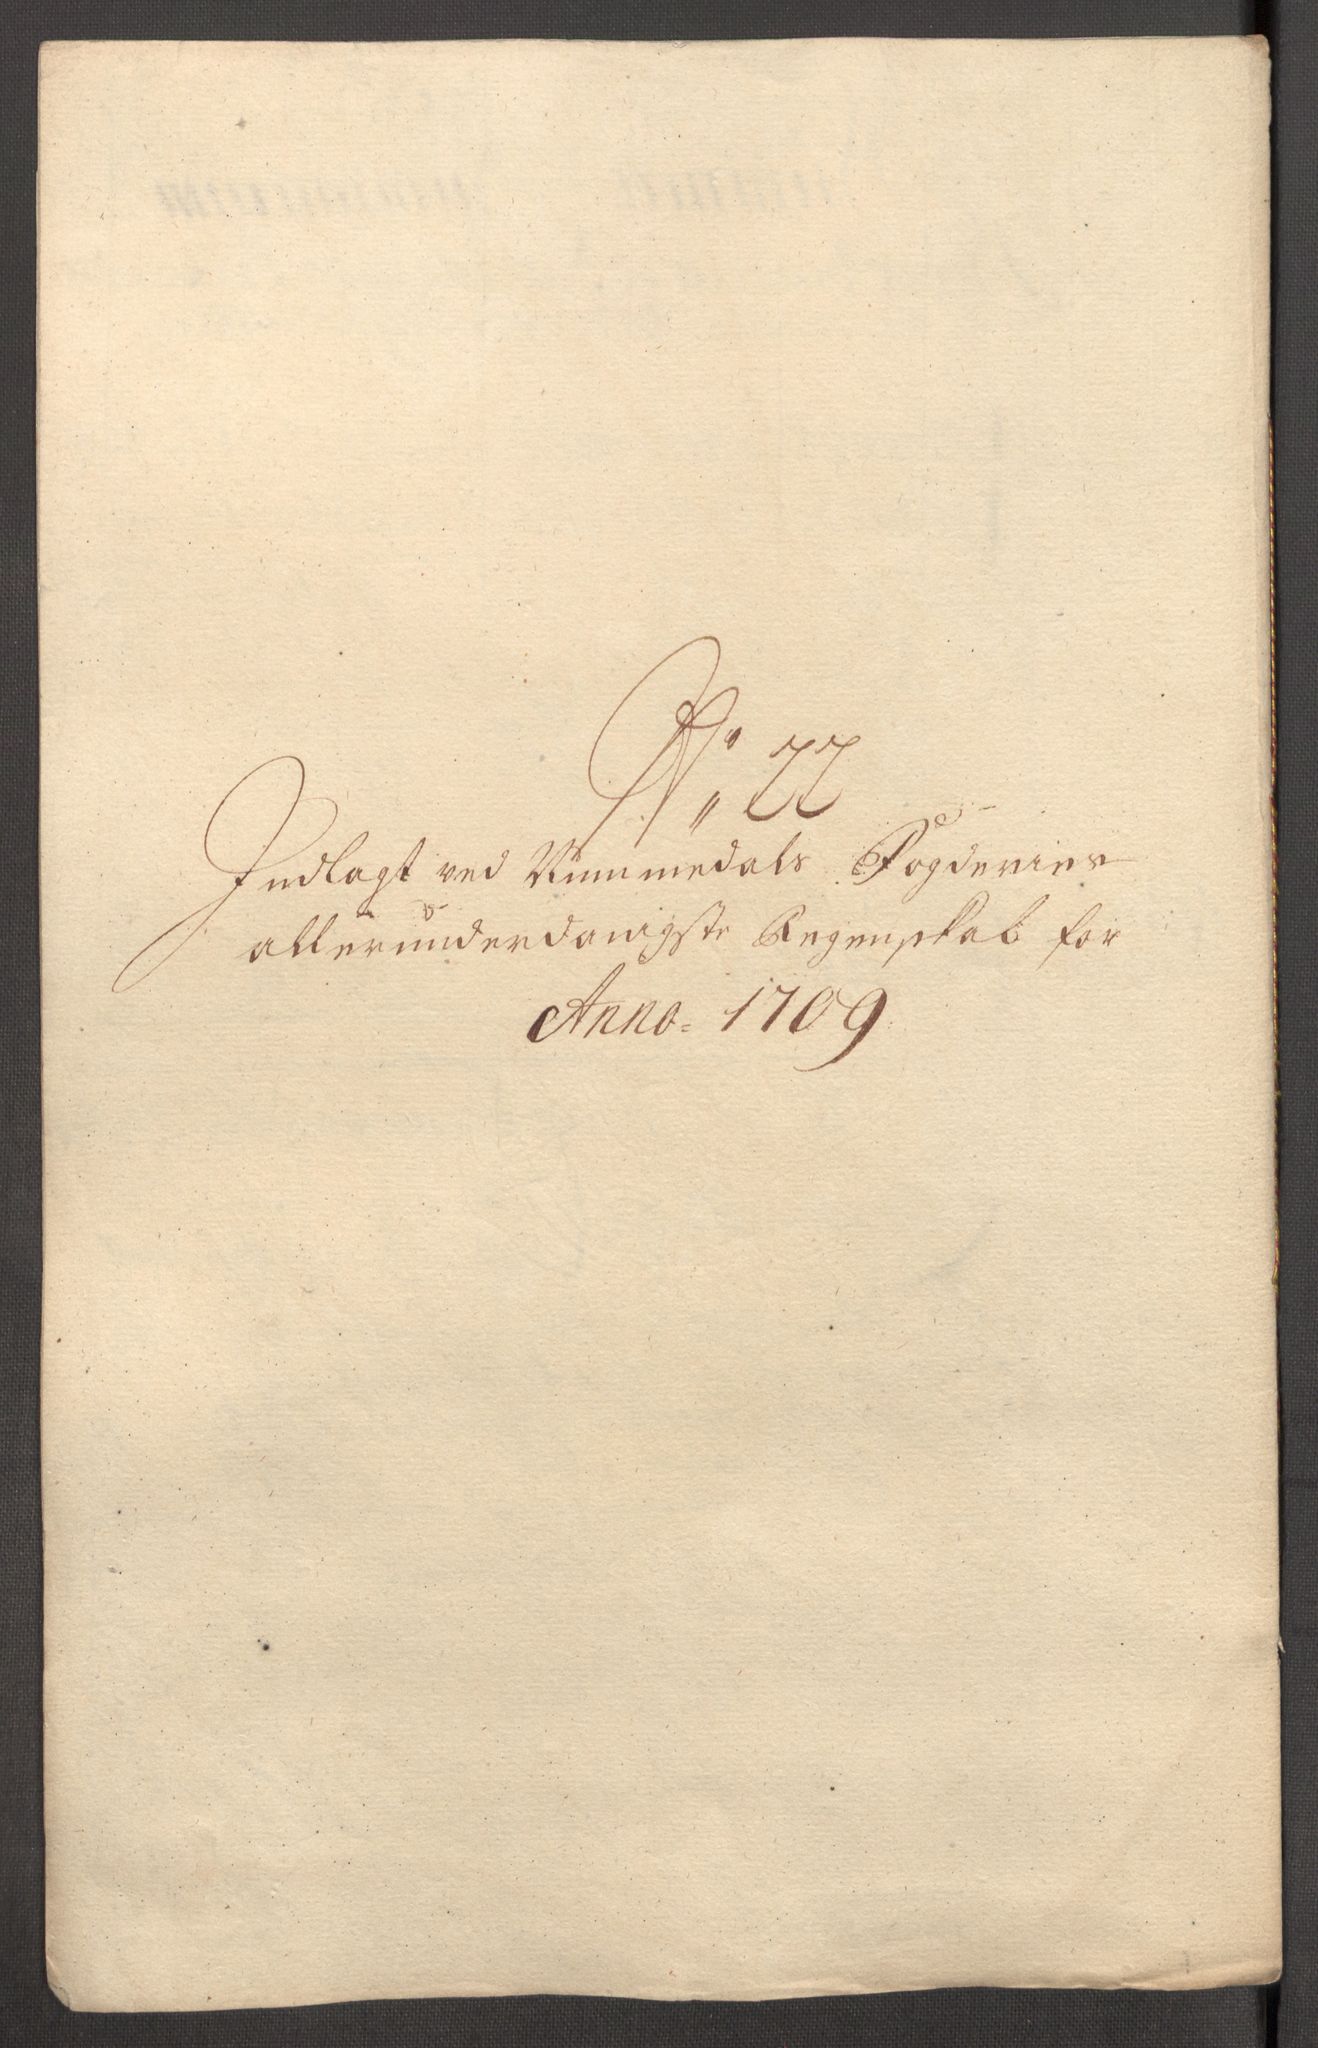 No: 22
Indlagt ved Nummedals Fogderies
allerunderdanigste Regenskab for
Anno= 1709